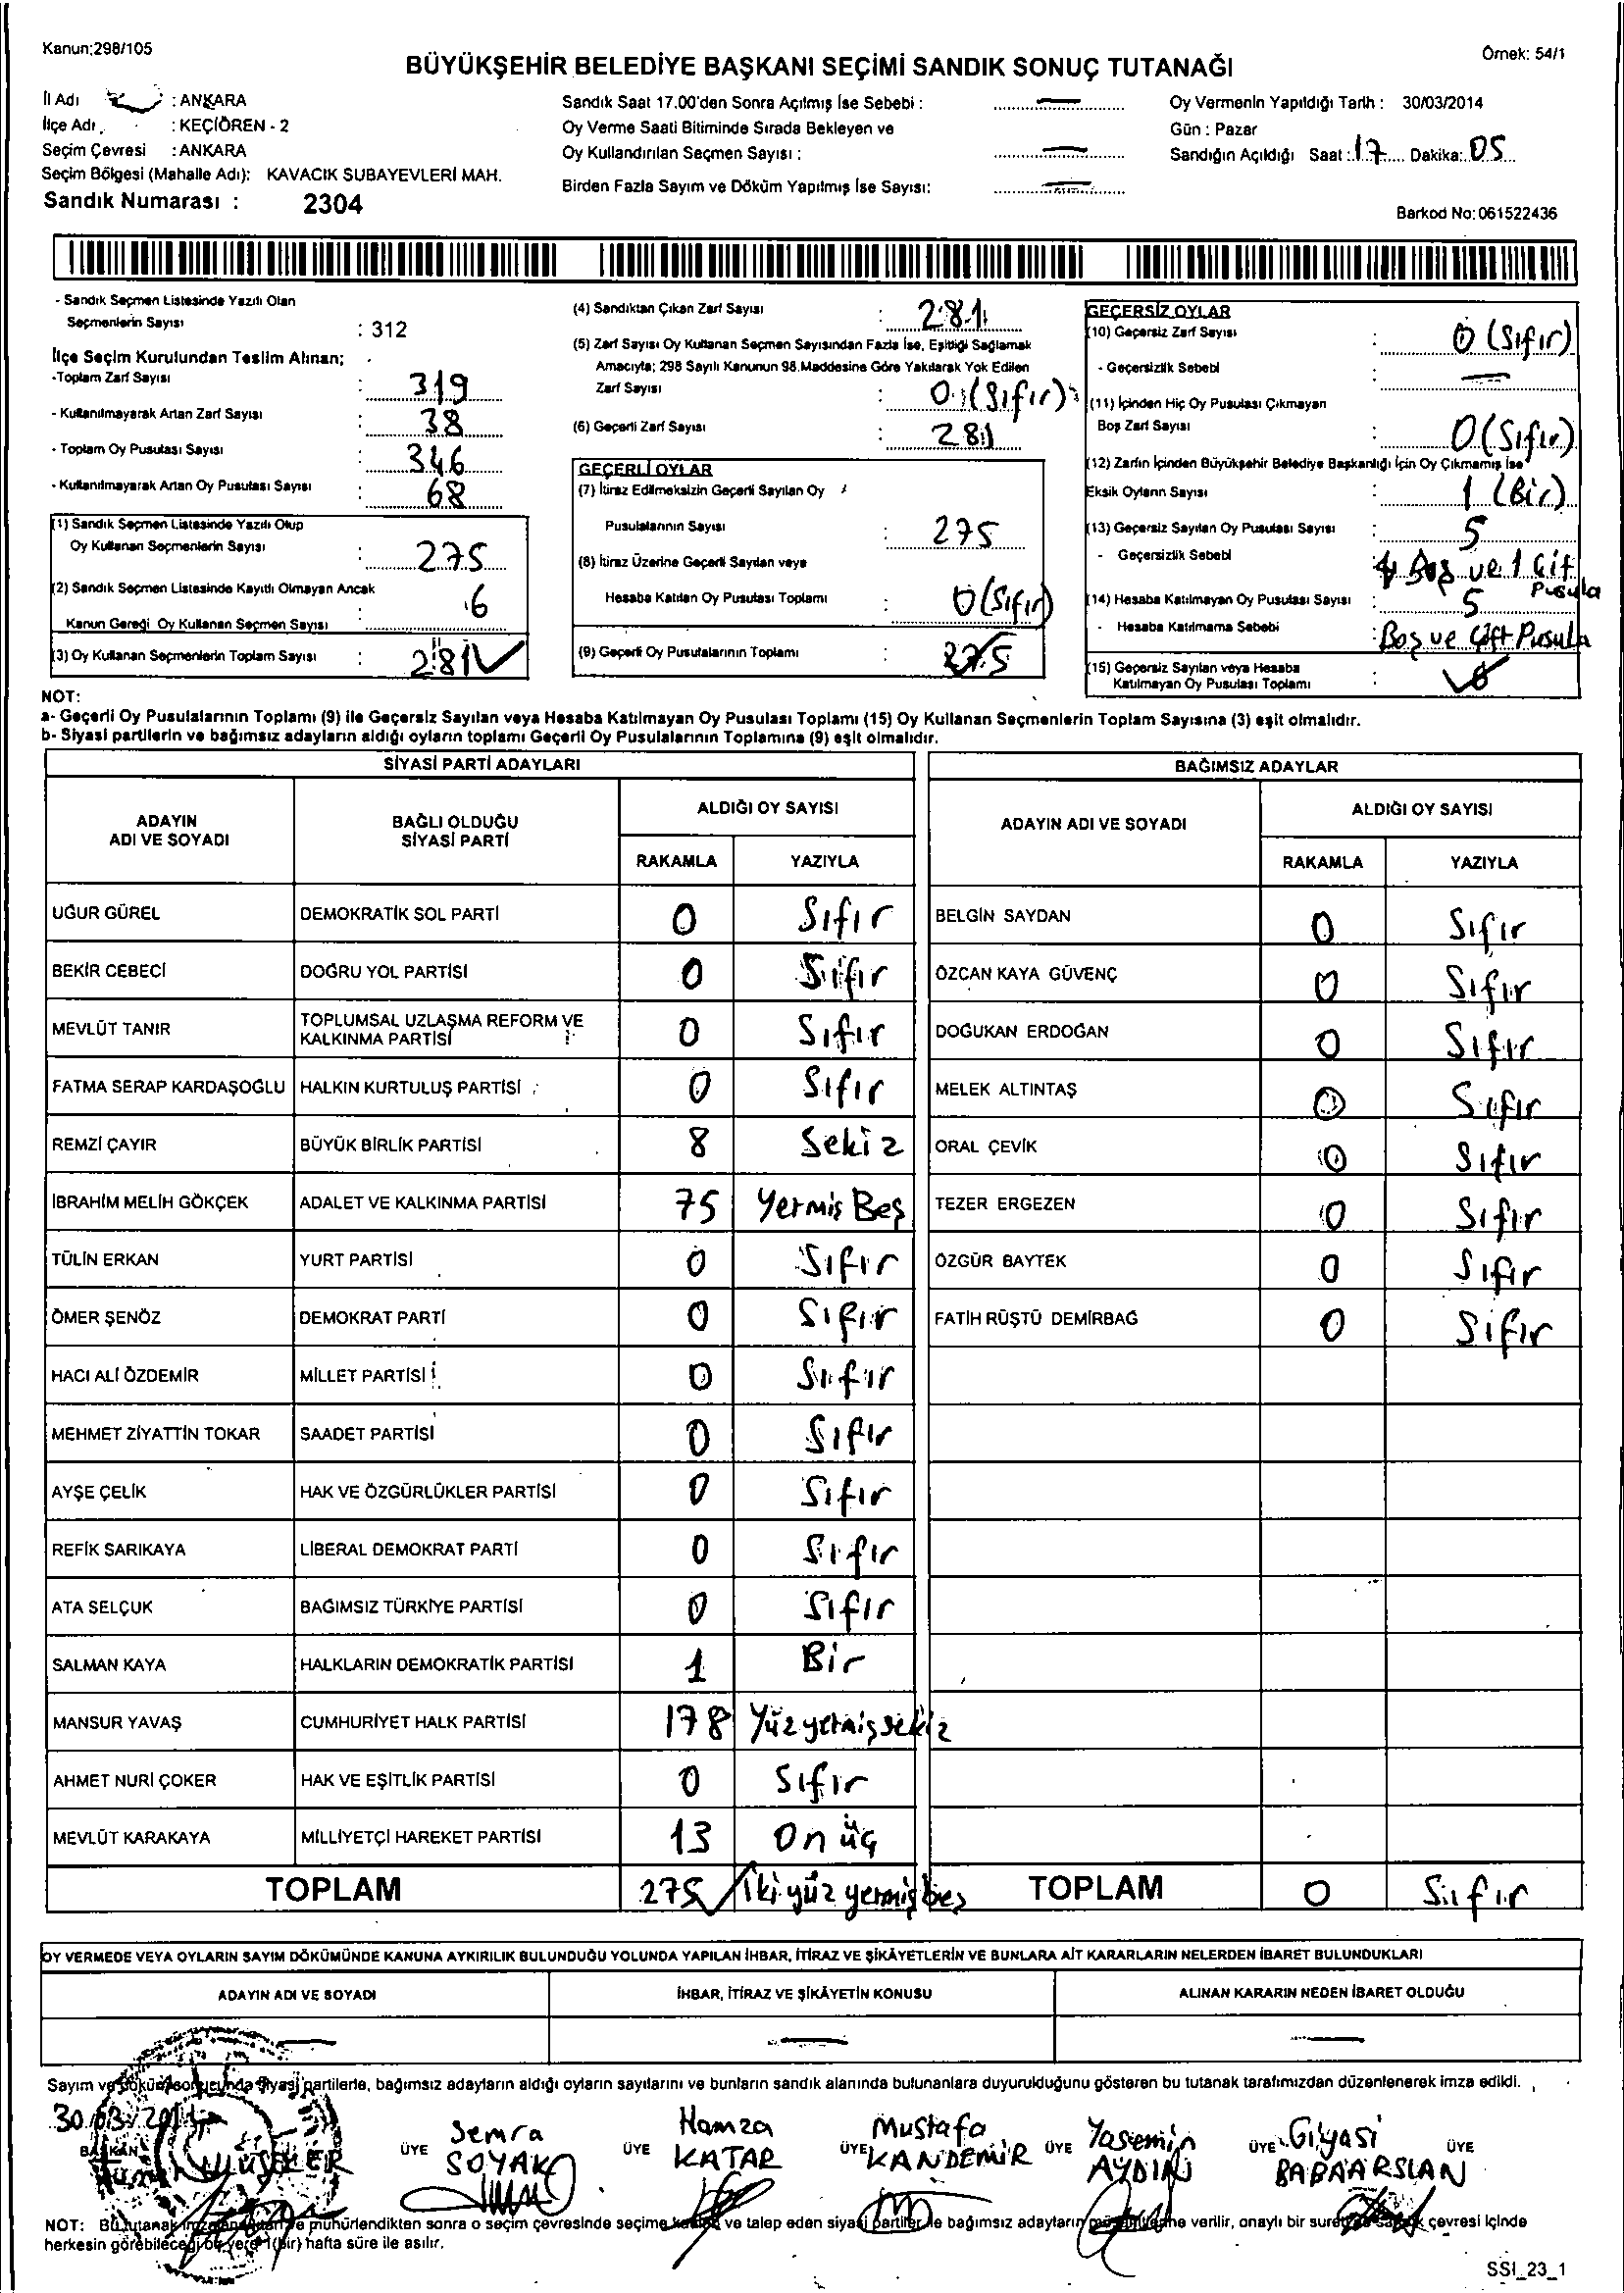 Kanun:298/105
Örnek: 54/1
BÜYÜKŞEHİR BELEDİYE BAŞKANI SEÇİMİ SANDIK SONUÇ TUTANAĞI
İl Adı : ANKARA
İlçe Adı : KEÇİÖREN - 2
Seçim Çevresi : ANKARA
Seçim Bölgesi (Mahalle Adı): KAVACIK SUBAYEVLERİ MAH.
Sandık Numarası : 2304
Sandık Saat 17.00'den Sonra Açılmış İse Sebebi : —
Oy Verme Saati Bitiminde Sırada Bekleyen ve
Oy Kullandırılan Seçmen Sayısı : —
Birden Fazla Sayım ve Döküm Yapılmış İse Sayısı: —
Oy Vermenin Yapıldığı Tarih : 30/03/2014
Gün : Pazar
Sandığın Açıldığı Saat : 17 Dakika: 05
Barkod No: 061522436
- Sandık Seçmen Listesinde Yazılı Olan
Seçmenlerin Sayısı : 312
İlçe Seçim Kurulundan Teslim Alınan;
-Toplam Zarf Sayısı : 319
- Kullanılmayarak Artan Zarf Sayısı : 38
- Toplam Oy Pusulası Sayısı : 346
- Kullanılmayarak Artan Oy Pusulası Sayısı : 68
(1) Sandık Seçmen Listesinde Yazılı Olup
Oy Kullanan Seçmenlerin Sayısı : 275
(2) Sandık Seçmen Listesinde Kayıtlı Olmayan Ancak
Kanun Gereği Oy Kullanan Seçmen Sayısı : 6
(3) Oy Kullanan Seçmenlerin Toplam Sayısı : 281
(4) Sandıktan Çıkan Zarf Sayısı : 281
(5) Zarf Sayısı Oy Kullanan Seçmen Sayısından Fazla İse, Eşitliği Sağlamak
Amacıyla; 298 Sayılı Kanunun 98.Maddesine Göre Yakılarak Yok Edilen
Zarf Sayısı : 0 (Sıfır)
(6) Geçerli Zarf Sayısı : 281
GEÇERLİ OYLAR
(7) İtiraz Edilmeksizin Geçerli Sayılan Oy
Pusulalarının Sayısı : 275
(8) İtiraz Üzerine Geçerli Sayılan veya
Hesaba Katılan Oy Pusulası Toplamı : 0 (Sıfır)
(9) Geçerli Oy Pusulalarının Toplamı : 275
GEÇERSİZ OYLAR
(10) Geçersiz Zarf Sayısı : 0 (Sıfır)
- Geçersizlik Sebebi : —
(11) İçinden Hiç Oy Pusulası Çıkmayan
Boş Zarf Sayısı : 0 (Sıfır)
(12) Zarfın İçinden Büyükşehir Belediye Başkanlığı İçin Oy Çıkmamış İse
Eksik Oyların Sayısı : 1 (Bir)
(13) Geçersiz Sayılan Oy Pusulası Sayısı : 5
- Geçersizlik Sebebi : 4 Boş ve 1 Çift Pusula
(14) Hesaba Katılmayan Oy Pusulası Sayısı : 5
- Hesaba Katılmama Sebebi : Boş ve Çift Pusula
(15) Geçersiz Sayılan veya Hesaba
Katılmayan Oy Pusulası Toplamı : 6
NOT:
a- Geçerli Oy Pusulalarının Toplamı (9) ile Geçersiz Sayılan veya Hesaba Katılmayan Oy Pusulası Toplamı (15) Oy Kullanan Seçmenlerin Toplam Sayısına (3) eşit olmalıdır.
b- Siyasi partilerin ve bağımsız adayların aldığı oyların toplamı Geçerli Oy Pusulalarının Toplamına (9) eşit olmalıdır.
SİYASİ PARTİ ADAYLARI
ADAYIN ADI VE SOYADI BAĞLI OLDUĞU SİYASİ PARTİ ALDIĞI OY SAYISI
RAKAMLA YAZIYLA
UĞUR GÜREL DEMOKRATİK SOL PARTİ 0 Sıfır
BEKİR CEBECİ DOĞRU YOL PARTİSİ 0 Sıfır
MEVLÜT TANIR TOPLUMSAL UZLAŞMA REFORM VE KALKINMA PARTİSİ 0 Sıfır
FATMA SERAP KARDAŞOĞLU HALKIN KURTULUŞ PARTİSİ 0 Sıfır
REMZİ ÇAYIR BÜYÜK BİRLİK PARTİSİ 8 Sekiz
İBRAHİM MELİH GÖKÇEK ADALET VE KALKINMA PARTİSİ 75 Yetmiş Beş
TÜLİN ERKAN YURT PARTİSİ 0 Sıfır
ÖMER ŞENÖZ DEMOKRAT PARTİ 0 Sıfır
HACI ALİ ÖZDEMİR MİLLET PARTİSİ 0 Sıfır
MEHMET ZİYATTİN TOKAR SAADET PARTİSİ 0 Sıfır
AYŞE ÇELİK HAK VE ÖZGÜRLÜKLER PARTİSİ 0 Sıfır
REFİK SARIKAYA LİBERAL DEMOKRAT PARTİ 0 Sıfır
ATA SELÇUK BAĞIMSIZ TÜRKİYE PARTİSİ 0 Sıfır
SALMAN KAYA HALKLARIN DEMOKRATİK PARTİSİ 1 Bir
MANSUR YAVAŞ CUMHURİYET HALK PARTİSİ 178 Yüzyetmişsekiz
AHMET NURİ ÇOKER HAK VE EŞİTLİK PARTİSİ 0 Sıfır
MEVLÜT KARAKAYA MİLLİYETÇİ HAREKET PARTİSİ 13 On üç
TOPLAM 275 İkiyüz yetmişbeş
BAĞIMSIZ ADAYLAR
ADAYIN ADI VE SOYADI ALDIĞI OY SAYISI
RAKAMLA YAZIYLA
BELGİN SAYDAN 0 Sıfır
ÖZCAN KAYA GÜVENÇ 0 Sıfır
DOĞUKAN ERDOĞAN 0 Sıfır
MELEK ALTINTAŞ 0 Sıfır
ORAL ÇEVİK 0 Sıfır
TEZER ERGEZEN 0 Sıfır
ÖZGÜR BAYTEK 0 Sıfır
FATİH RÜŞTÜ DEMİRBAĞ 0 Sıfır
TOPLAM 0 Sıfır
OY VERMEDE VEYA OYLARIN SAYIM DÖKÜMÜNDE KANUNA AYKIRILIK BULUNDUĞU YOLUNDA YAPILAN İHBAR, İTİRAZ VE ŞİKÂYETLERİN VE BUNLARA AİT KARARLARIN NELERDEN İBARET BULUNDUKLARI
ADAYIN ADI VE SOYADI İHBAR, İTİRAZ VE ŞİKÂYETİN KONUSU ALINAN KARARIN NEDEN İBARET OLDUĞU
— — —
Sayım ve döküm sonucunda siyasi partilerle, bağımsız adayların aldığı oyların sayılarını ve bunların sandık alanında bulunanlara duyurulduğunu gösteren bu tutanak tarafımızdan düzenlenerek imza edildi.
30/03/2014
BAŞKAN
ÜYE Semra SOYAK
ÜYE Hamza KATAR
ÜYE Mustafa KANDEMİR
ÜYE Yasemin AYDIN
ÜYE Gıyasi BABAARSLAN
ÜYE
NOT: Bu tutanak imzalandıktan ve mühürlendikten sonra o seçim çevresinde seçime katılan ve talep eden siyasi partiler ile bağımsız adayların müşahitlerine verilir, onaylı bir sureti de sandık çevresi içinde
herkesin görebileceği bir yere 1(bir) hafta süre ile asılır.
SSI_23_1